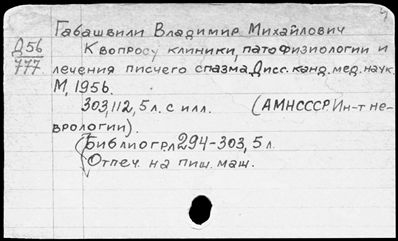 Габашвили Владимир Михайлович
Д56
777
К вопросу клиники, патофизиологии и
лечения писчего спазма. Дисс. канд. мед. наук.
М, 1956.
303, 112, 5 л. с илл. (АМНСССР. Ин-т не-
врологии).
(Библиогр. л 294-303, 5 л.
Отпеч. на пиш. маш.